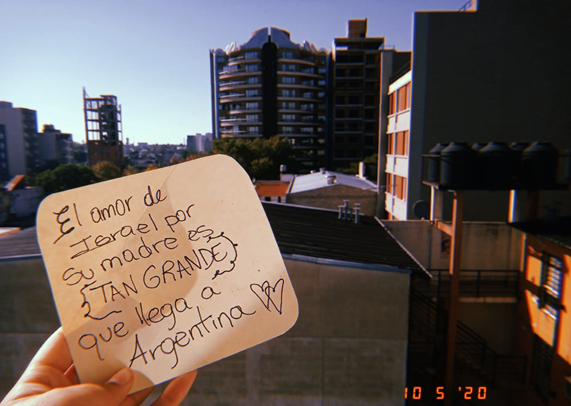 El amor de
Israel por
su madre es
{TAN GRANDE}
que llega a
Argentina
10 5 '20